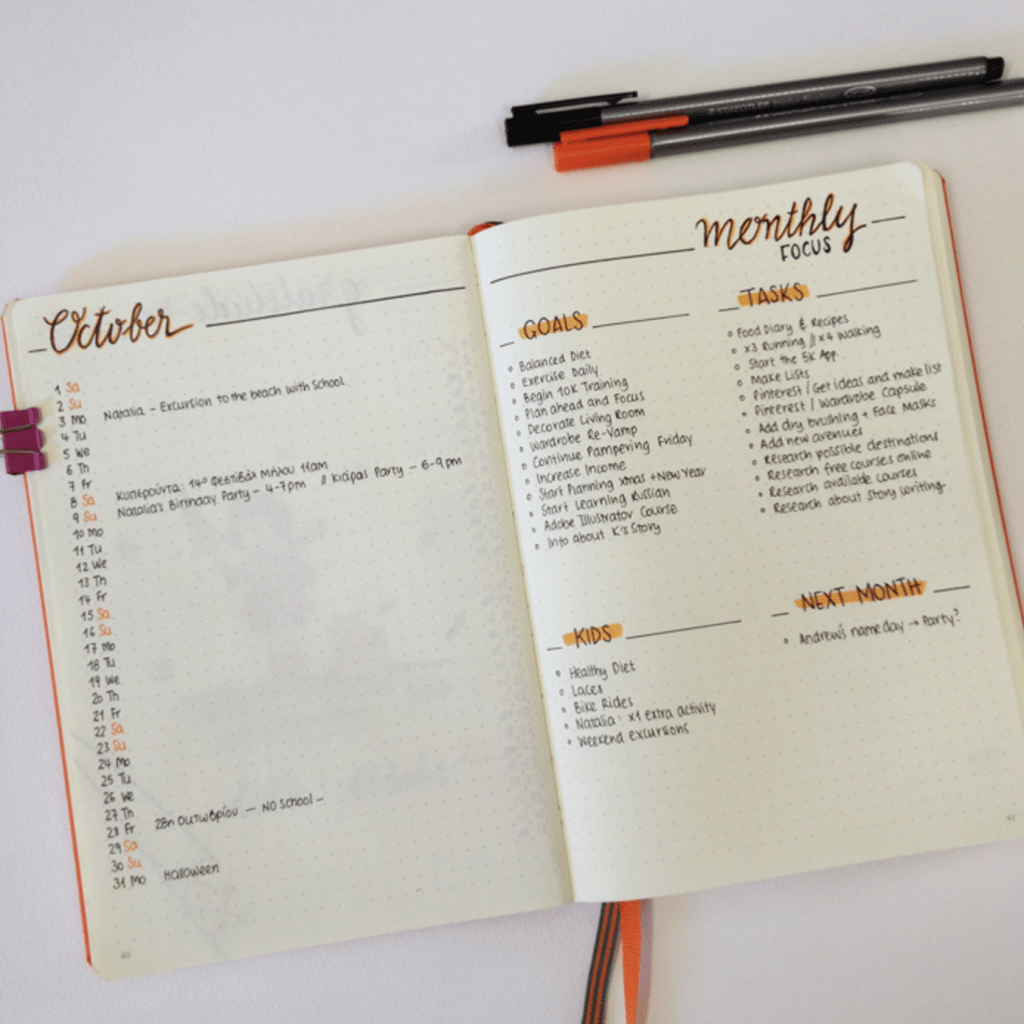 October
1 Sa
2 Su
3 Mo Natalia - Excursion to the beach with School
4 Tu
5 We
6 Th
7 Fr
8 Sa Κυπερούντα: 14ο Φεστιβάλ Μήλου 11am
9 Su Natalia's Birthday Party - 4-7pm // Κιάρας Party - 6-9pm
10 Mo
11 Tu
12 We
13 Th
14 Fr
15 Sa
16 Su
17 Mo
18 Tu
19 We
20 Th
21 Fr
22 Sa
23 Su
24 Mo
25 Tu
26 We
27 Th
28 Fr 28η Οκτωβρίου - No School -
29 Sa
30 Su
31 Mo Halloween
monthly
FOCUS
GOALS
Balanced Diet
Exercise Daily
Begin 10K Training
Plan ahead and Focus
Decorate Living Room
Wardrobe Re-Vamp
Continue Pampering Friday
Increase Income
Start Planning Xmas + New Year
Start Learning Russian
Adobe Illustrator Course
Info about K's Story
TASKS
Food Diary & Recipes
x3 Running // x4 Walking
Start the 5K App.
Make Lists
Pinterest / Get ideas and make list
Pinterest / Wardrobe Capsule
Add dry brushing + Face Masks
Add new avenues
Research possible destinations
Research free courses online
Research available courses
Research about Story Writing.
KIDS
Healthy Diet
Laces
Bike Rides
Natalia: x1 extra activity
Weekend excursions
NEXT MONTH
Andrew's name day → Party?